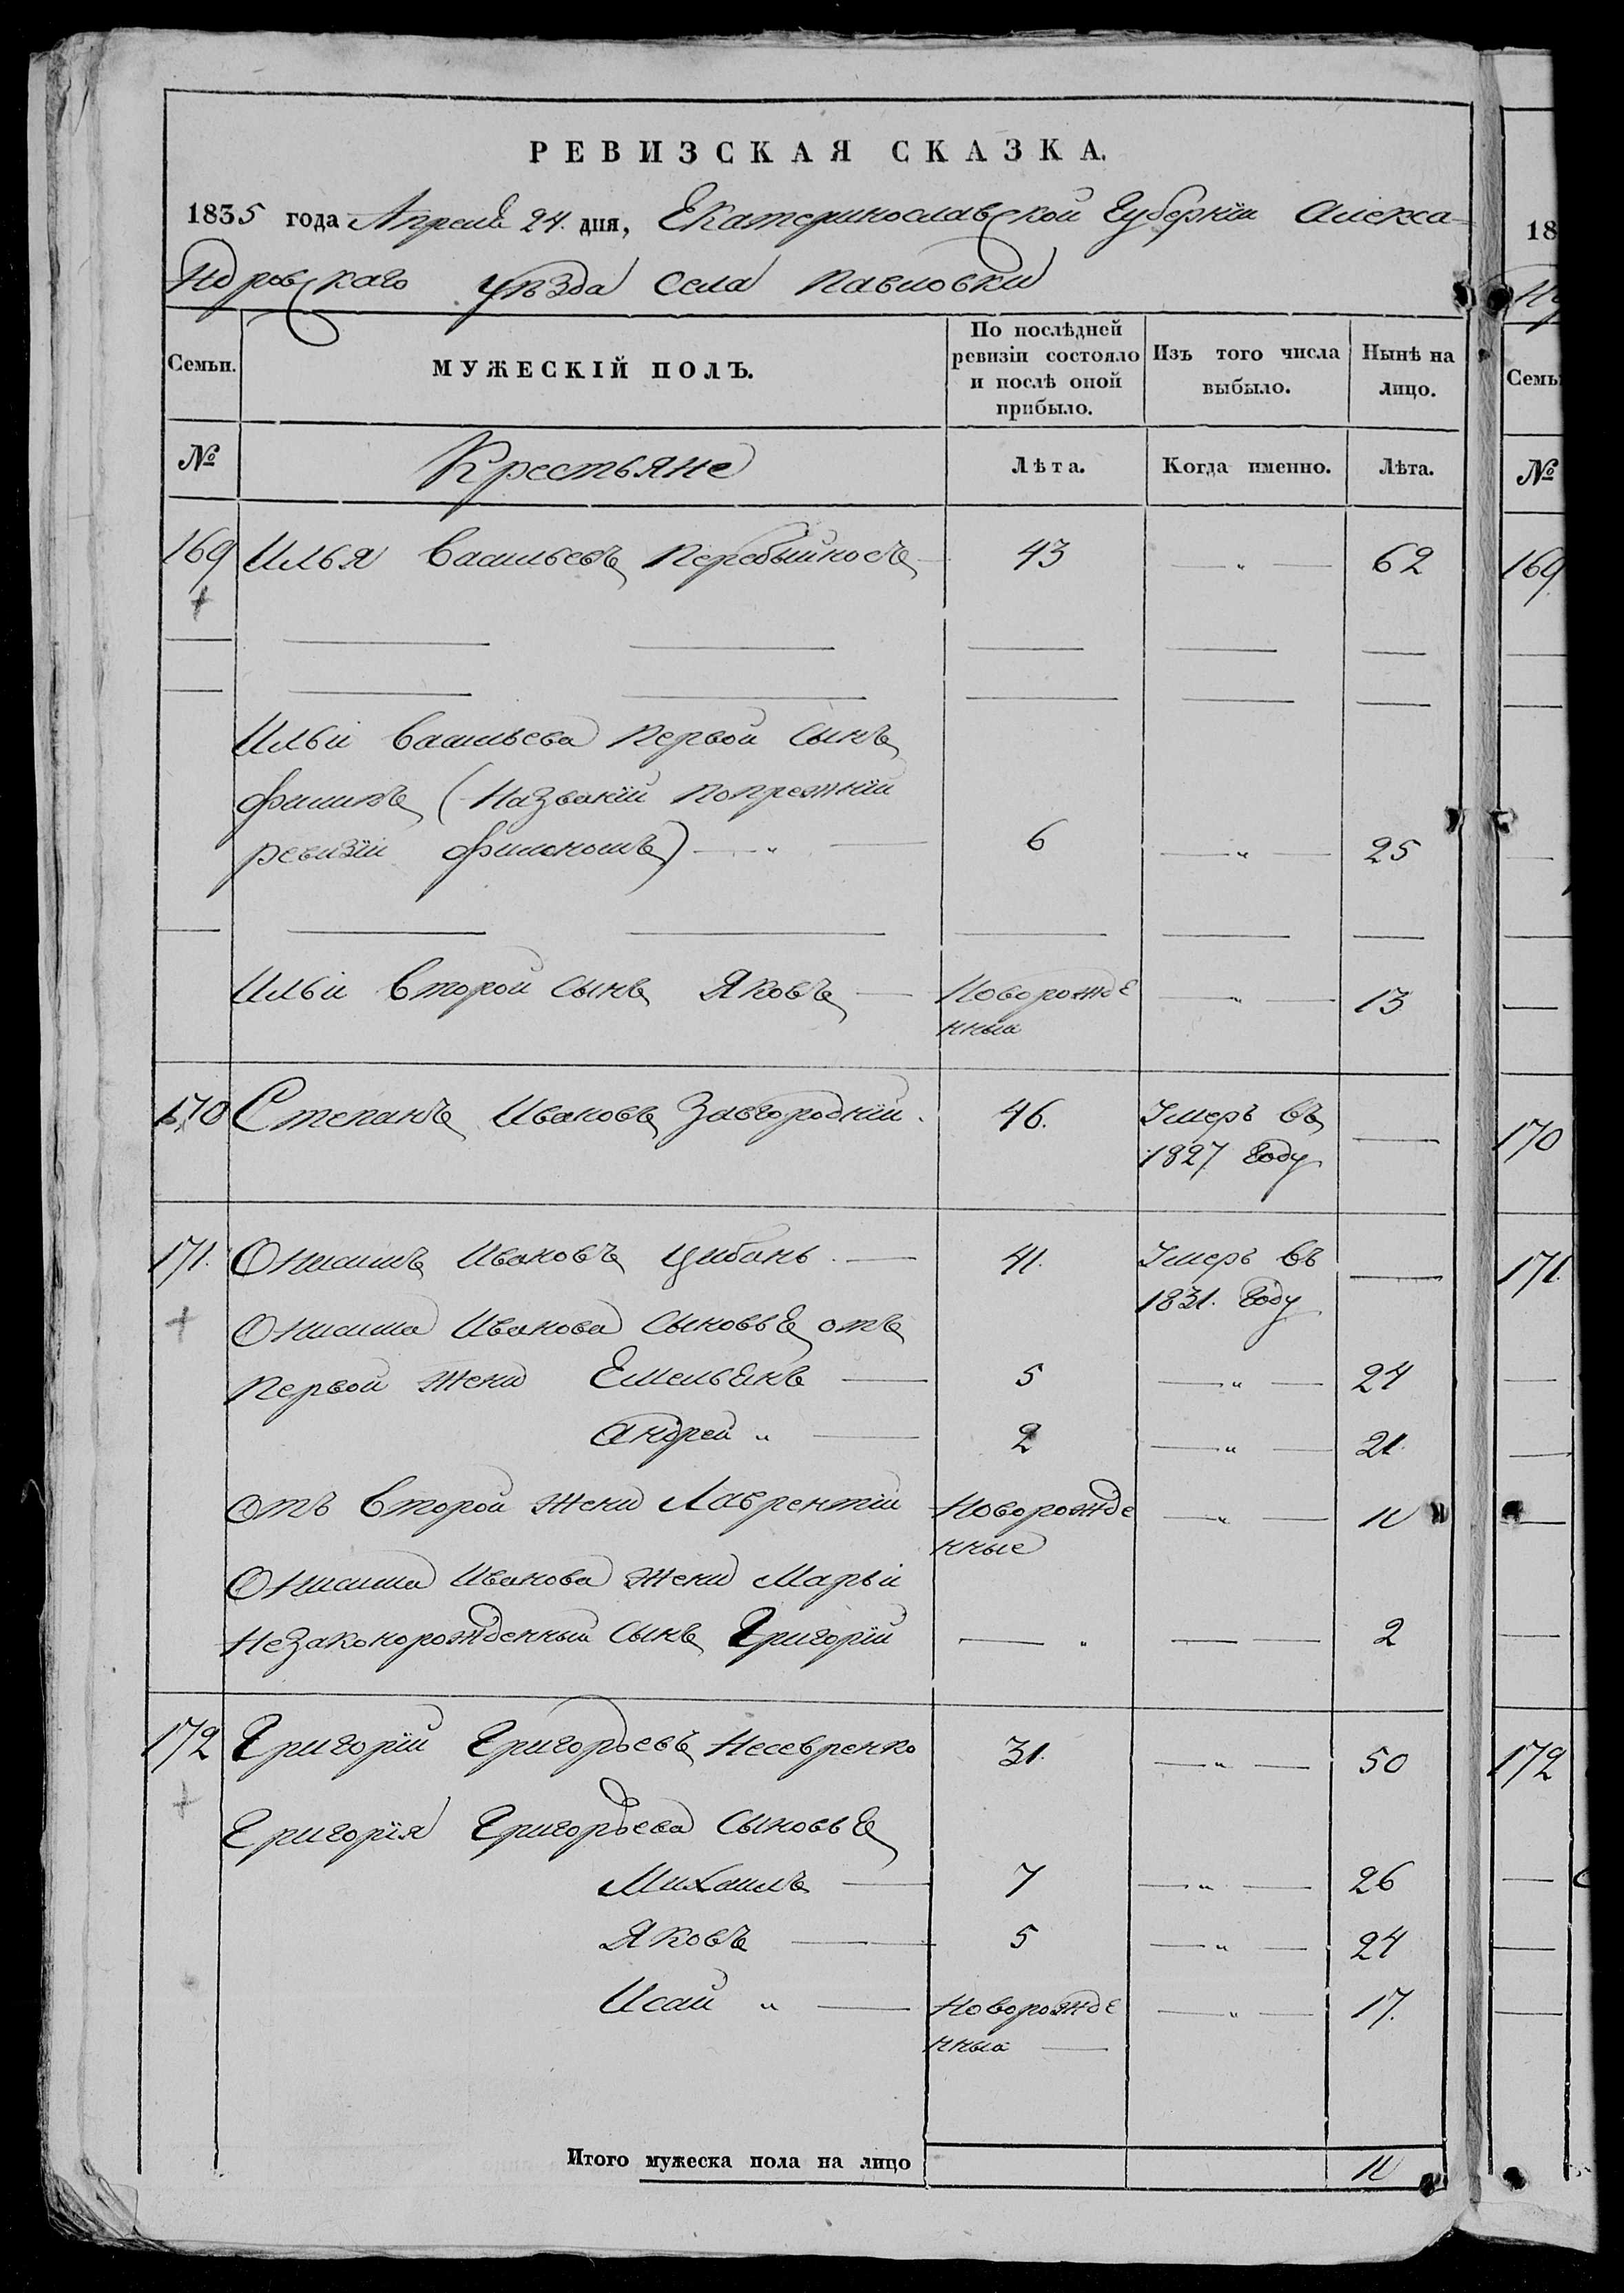 РЕВИЗСКАЯ СКАЗКА.
1835 года Апреля 24. дня, Екатеринославской Губернiи Алекса-
ндровскаго уѣзда Села Павловки
Семьи. МУЖЕСКIЙ ПОЛЪ. По послѣдней ревизiи состояло и послѣ оной прибыло. Изъ того числа выбыло. Нынѣ на лицо.
№ Крестьяне Лѣта. Когда именно. Лѣта.
169 Илья Васильевъ Перебыйносъ 43 — „ — 62
Ильи Васильева Первой Сынъ
Филипъ (Названiй Попрежнiй
ревизiи Филимонъ) — „ — 6 — „ — 25
Ильи Второй Сынъ Яковъ — Новорожде — „ — 13
нный
170 Степанъ Ивановъ Завгороднiй. 46. Умеръ въ —
1827 Году
171. Онисимъ Ивановъ Цибань. — 41. Умеръ въ —
1831. Году
Онисима Иванова Сыновьѧ отъ
Первой жени Емельѧнъ — 5 — „ — 24
Андрей „ — 2 — „ — 21.
Отъ Второй жени Лаврентiй Новорожде — „ — 11
нные
Онисима Иванова жени Марьи
Незаконорожденный Сынъ Григорiй — „ — — 2
172 Григорiй Григорьевъ Несевренко 31. — „ — 50
Григорiя Григорьева Сыновьѧ
Михаилъ — 7 — „ — 26
Яковъ — 5 — „ — 24
Исай „ — Новорожде — „ — 17.
нный —
Итого мужеска пола на лицо 11
18
Семь
№
169
170
171.
172